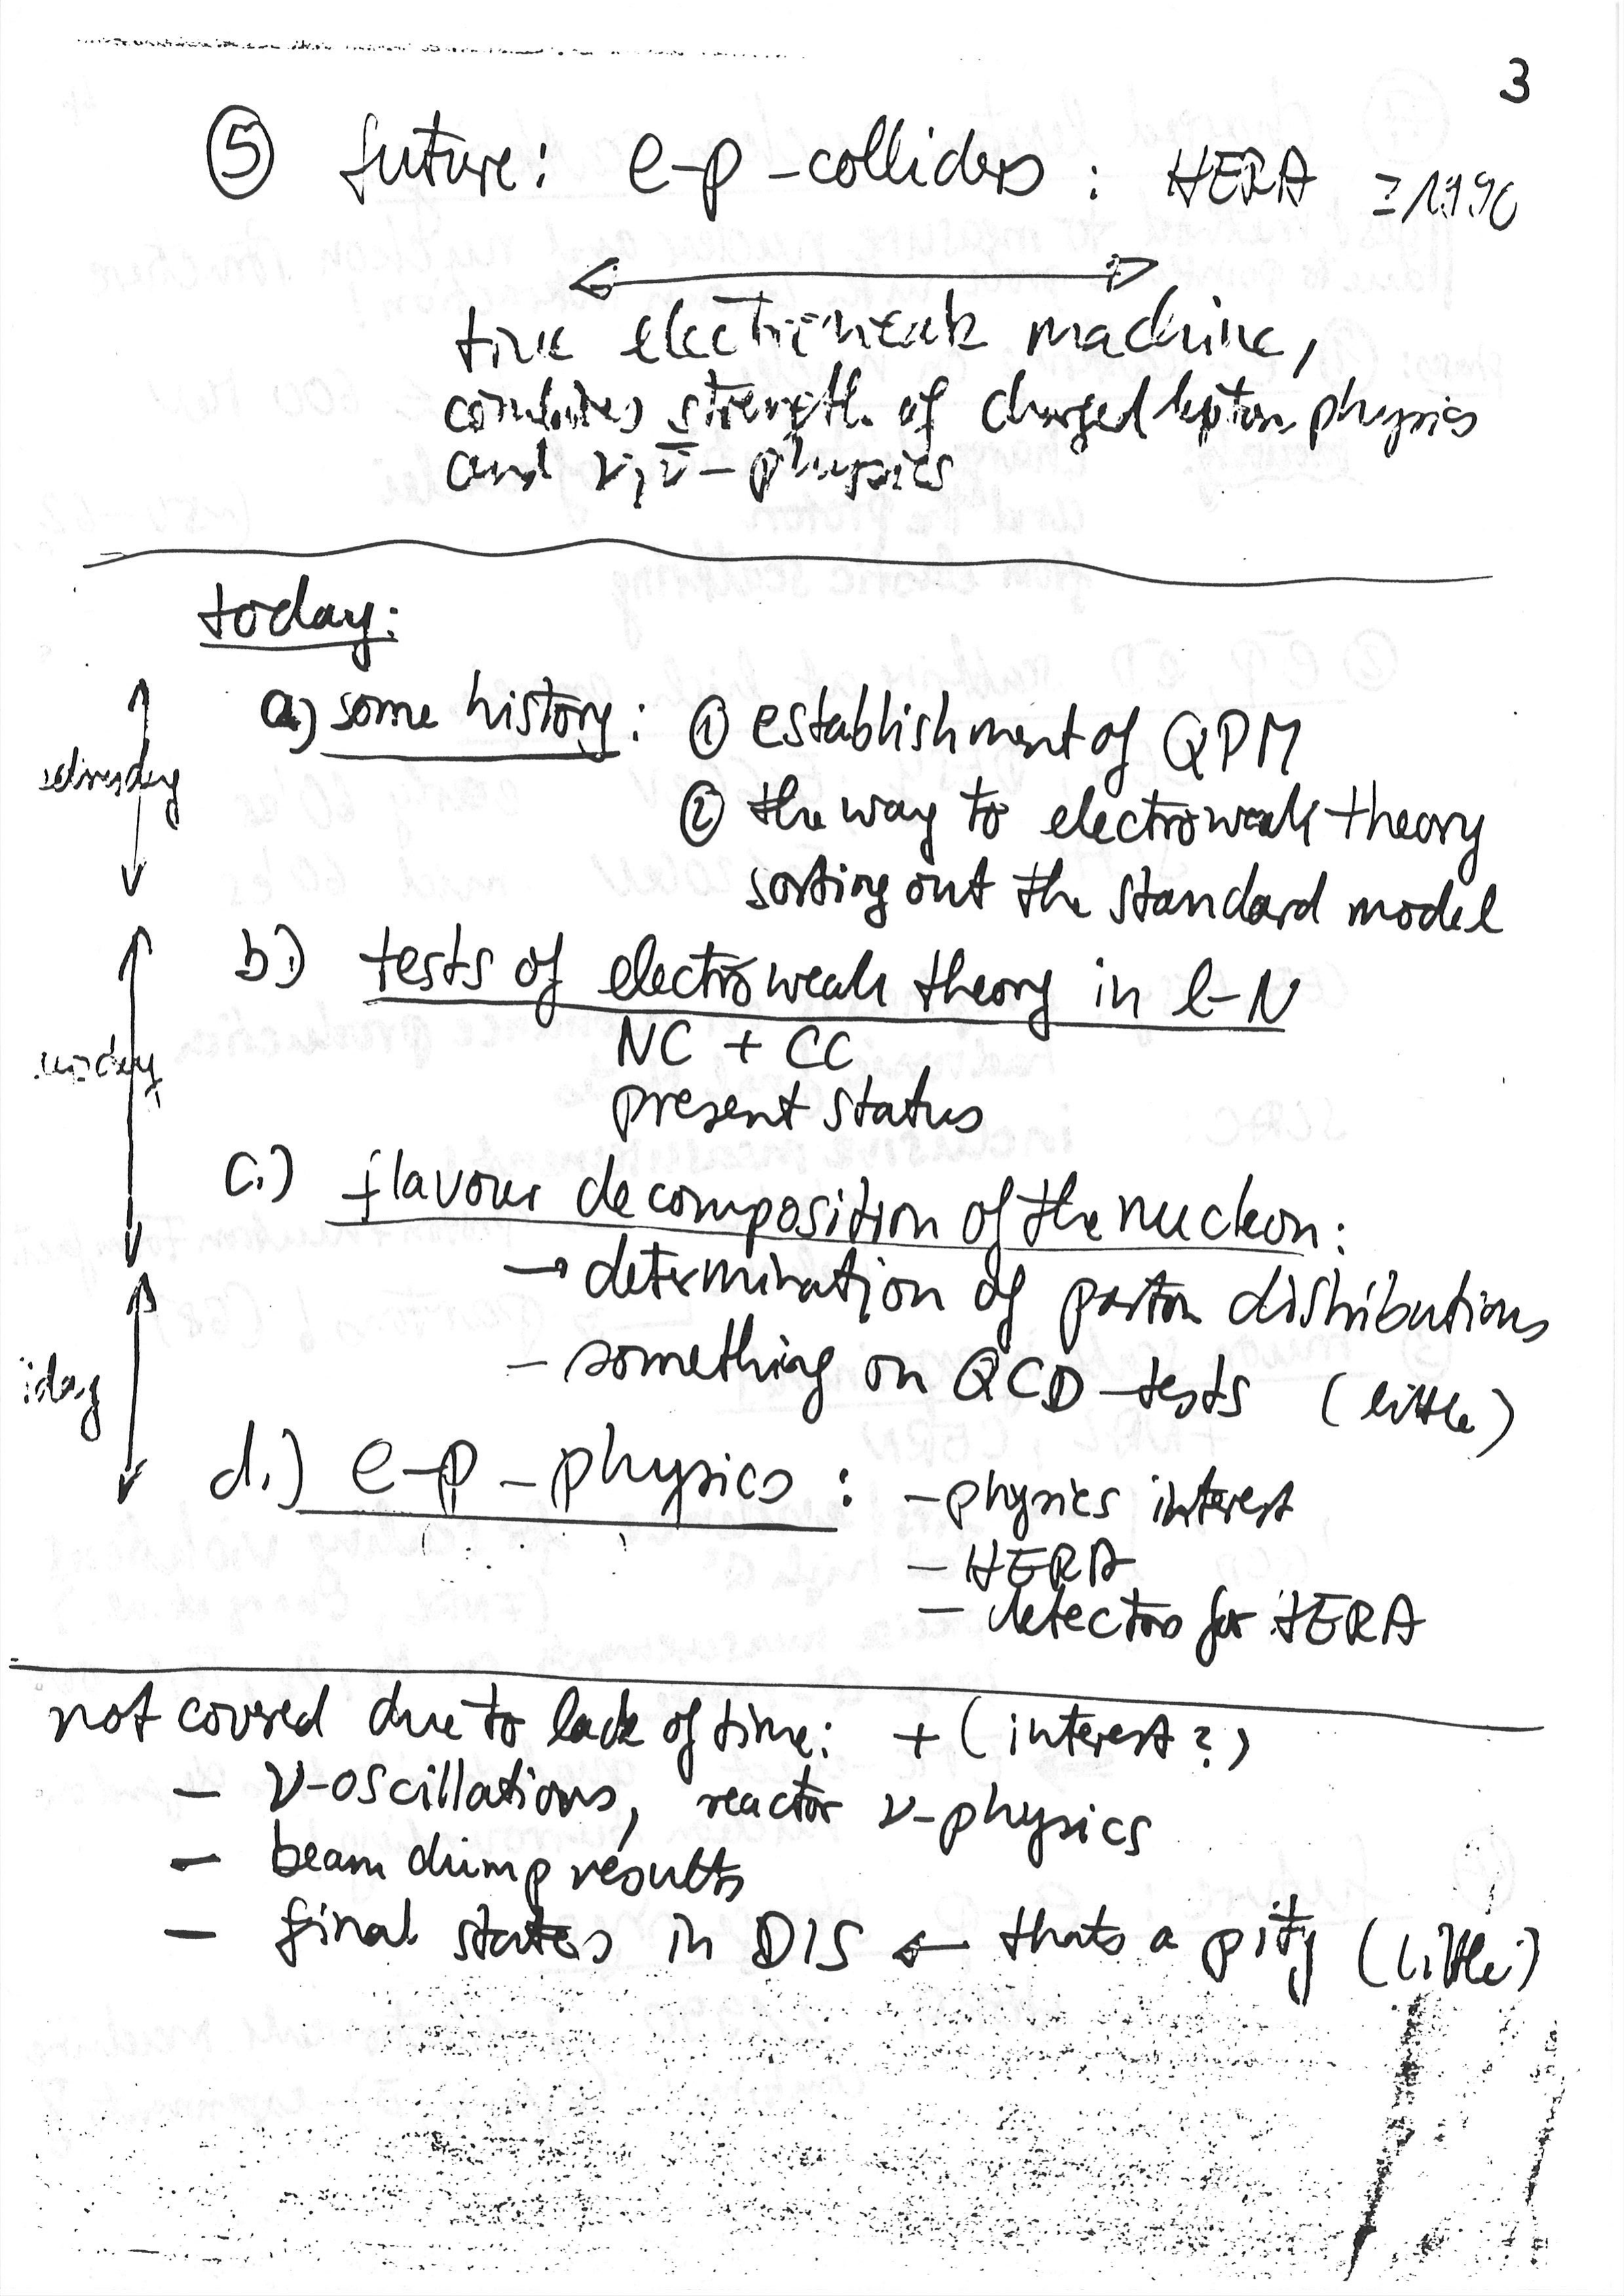 3
⑤ future: e-p-colliders: HERA ≥1990
true electroweak machine,
combines strength of charged lepton physics
and ν,ν̄-physics
today:
a) some history: ① establishment of QPM
② the way to electroweak theory
sorting out the standard model
b.) tests of electroweak theory in l-N
NC + CC
present status
c.) flavour decomposition of the nucleon:
→ determination of parton distributions
- something on QCD-tests (little)
iday
d.) e-p-physics: - physics interest
- HERA
- detectors for HERA
not covered due to lack of time: + (interest?)
- ν-oscillations, reactor ν-physics
- beam dump results
- final states in DIS ← thats a pity (little)